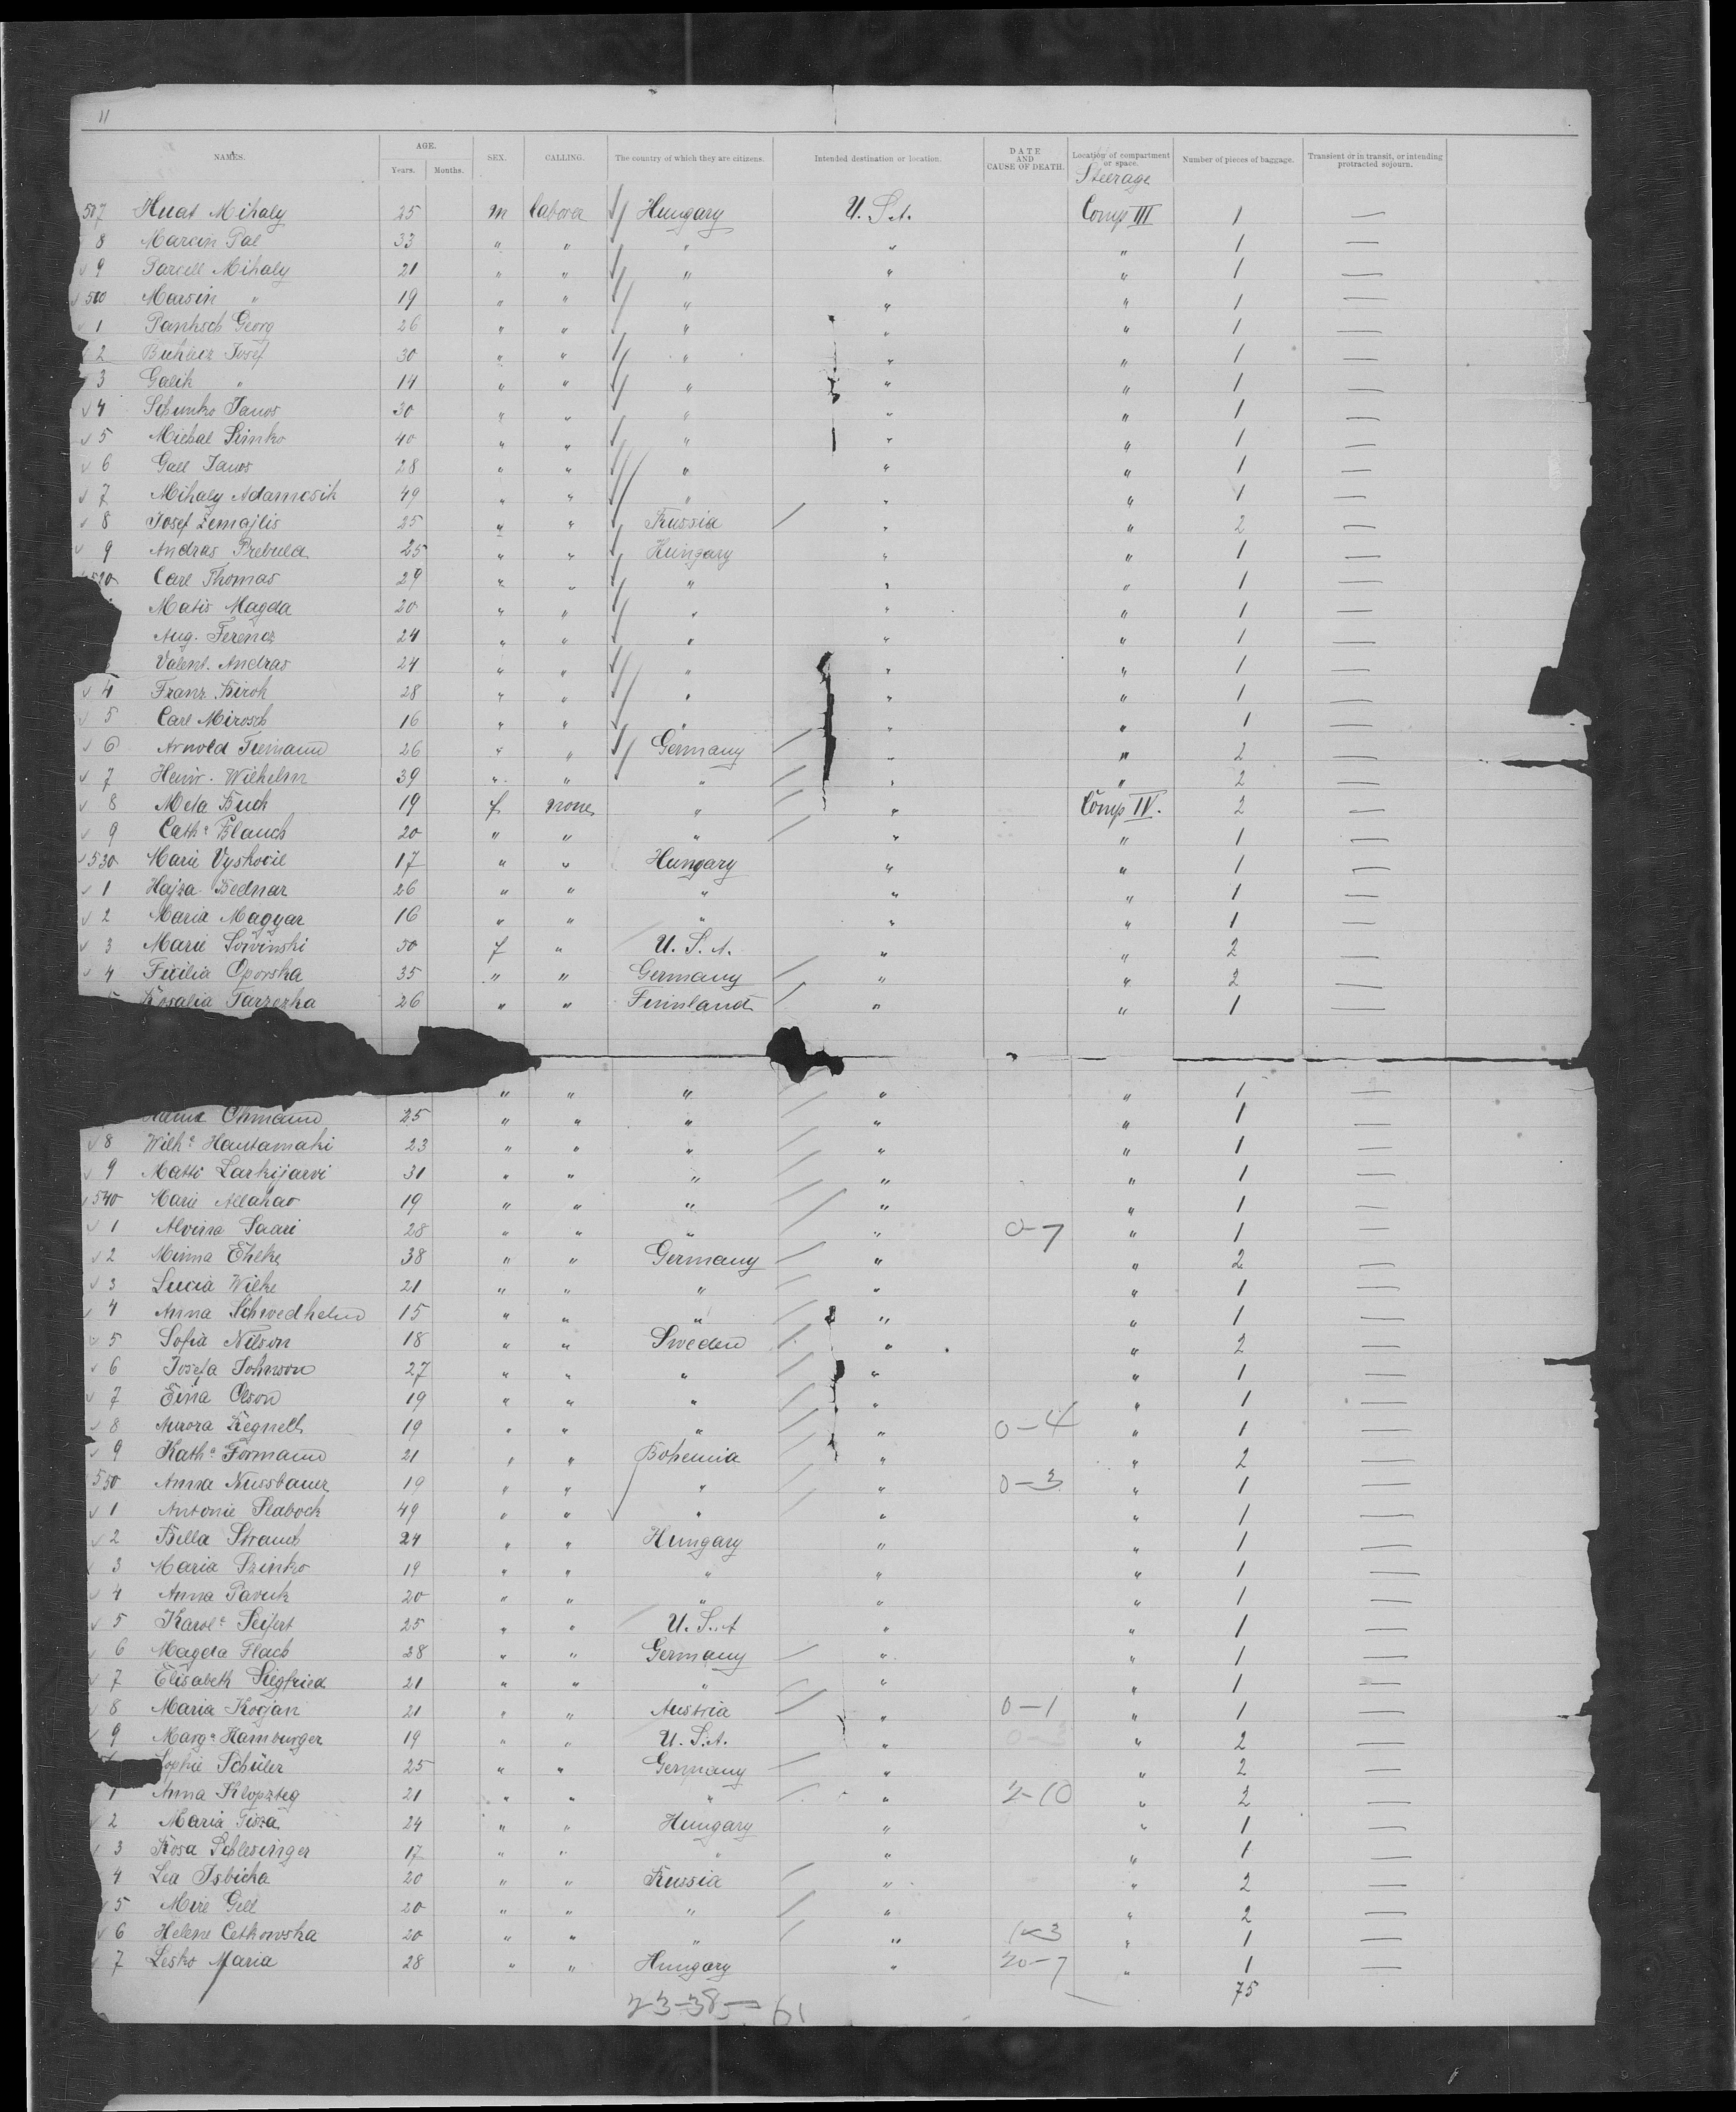 11
NAMES. AGE. Years. Months. SEX. CALLING. The country of which they are citizens. Intended destination or location. DATE AND CAUSE OF DEATH. Location of compartment or space. Number of pieces of baggage. Transient or in transit, or intending protracted sojourn.
Steerage
507 Huat Mihaly 25 m laborer Hungary U. S. A. Comp III 1 —
8 Marcin Pal 33 " " " " " 1 —
9 Parcell Mihaly 21 " " " " " 1 —
510 Marsin " 19 " " " " " 1 —
1 Panksch Georg 26 " " " " " 1 —
2 Josef 30 " " " " " 1 —
3 Galik " 14 " " " " " 1 —
4 Schunko Janos 30 " " " " " 1 —
5 Michal Simko 40 " " " " " 1 —
6 Gall Janos 28 " " " " " 1 —
7 Mihaly Adamcsik 49 " " " " " 1 —
8 Josef Zemajlis 25 " " Russia " " 2 —
9 Andras Prebula 25 " " Hungary " " 1 —
520 Carl Thomas 29 " " " " " 1 —
Matis Magda 20 " " " " " 1 —
Aug. Ferencz 24 " " " " " 1 —
Valent. Andras 24 " " " " " 1 —
4 Franz Biroh 28 " " " " " 1 —
5 Carl Mirosch 16 " " " " " 1 —
6 Arnold Tiemann 26 " " Germany " " 2 —
7 Heinr. Wilhelm 39 " " " " " 2 —
8 Meta Buch 19 f none " " Comp IV. 2 —
9 Cathe Blauch 20 " " " " " 1 —
530 Marie Vyskocil 17 " " Hungary " " 1 —
1 Hajza Bednar 26 " " " " " 1 —
2 Maria Magyar 16 " " " " " 1 —
3 Marie Sowinski 50 f " U. S. A. " " 2 —
4 Oporska 35 " " Germany " " 2 —
5 Rosalia Tarzozka 26 " " Finnland " " 1 —
" " " " " 1 —
Ohmann 25 " " " " " 1 —
8 Wilhe Hautamaki 23 " " " " " 1 —
9 Matti Larkijarvi 31 " " " " " 1 —
540 Marie Allahao 19 " " " " " 1 —
1 Alvina Saari 28 " " " " 0-7 " 1 —
2 Minna Eheke 38 " " Germany " " 2 —
3 Lucia Wilke 21 " " " " " 1 —
4 Anna Schwedhelm 15 " " " " " 1 —
5 Sofia Nilson 18 " " Sweden " " 2 —
6 Josefa Johnson 27 " " " " " 1 —
7 Eina Olson 19 " " " " " 1 —
8 Aurora Regnell 19 " " " " 0-4 " 1 —
9 Kathe Formann 21 " " Bohemia " " 2 —
550 Anna Nussbauer 19 " " " " 0-3 " 1 —
1 Antonie Slabock 49 " " " " " 1 —
2 Bella Straut 24 " " Hungary " " 1 —
3 Maria Szinko 19 " " " " " 1 —
4 Anna Pavuk 20 " " " " " 1 —
5 Karole Seifert 25 " " U. S. A " " 1 —
6 Magda Flach 28 " " Germany " " 1 —
7 Elisabeth Siegfried 21 " " " " " 1 —
8 Maria Kogjan 21 " " Austria " 0-1 " 1 —
9 Marge Hamburger 19 " " U. S. A. " 0-3 " 2 —
Sophie Schüler 25 " " Germany " " 2 —
1 Anna Klopzteg 21 " " " " 2-10 " 2 —
2 Maria Tisza 24 " " Hungary " " 1 —
3 Rosa Schlesinger 17 " " " " " 1 —
4 Lea Isbicka 20 " " Russia " " 2 —
5 Mire Gell 20 " " " " " 2 —
6 Helene Cetkowska 20 " " " " " 1 —
7 Lesko Maria 28 " " Hungary " 20-7 " 1 —
75
23-38= 61